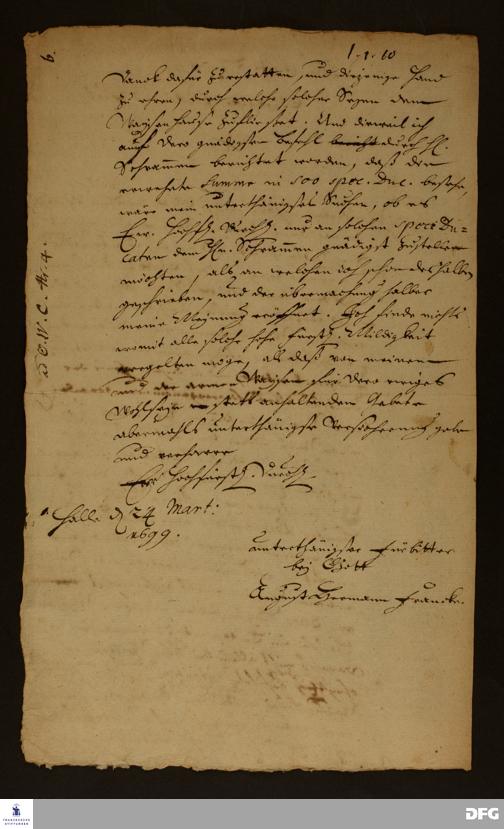 6.
1-1-10
Danck dafür zu erstatten, und diejenige Hand
zu ehren, durch welche solcher Segen dem
Waysenhause zufließet. Und dieweil ich
auff Dero gnädigsten Befehl durch H.
Schrammen berichtet worden, daß die
Summe in 500 spec. Duc. bestehe,
wäre mein unterthänigstes Suchen, ob es
Ew. Hochfl. Durchl. nur an solchen specie Du=
caten dem Hn. Schrammen gnädigst zustellen
möchten, als an welchen ich schon deshalben
geschrieben, und der übermachung halber
meine Meynung eröffnet. Ich finde nichts
womit alle solche hohe Fürstl. Mildigkeit
vergelten möge, als daß von meinem
und der armen Waysen für Dero ewiges
Wohlseyn stets anhaltenden Gebete
abermahls unterthänigste Versicherung gebe
und verharre
Ew. Hochfürstl. Durchl.
Halle d. 24 Mart:
1699.
unterthänigster Fürbitter
bey Gott
August Hermann Francke.
ad C. IV. C. Nr. 4.
FRANCKESCHE STIFTUNGEN
DFG